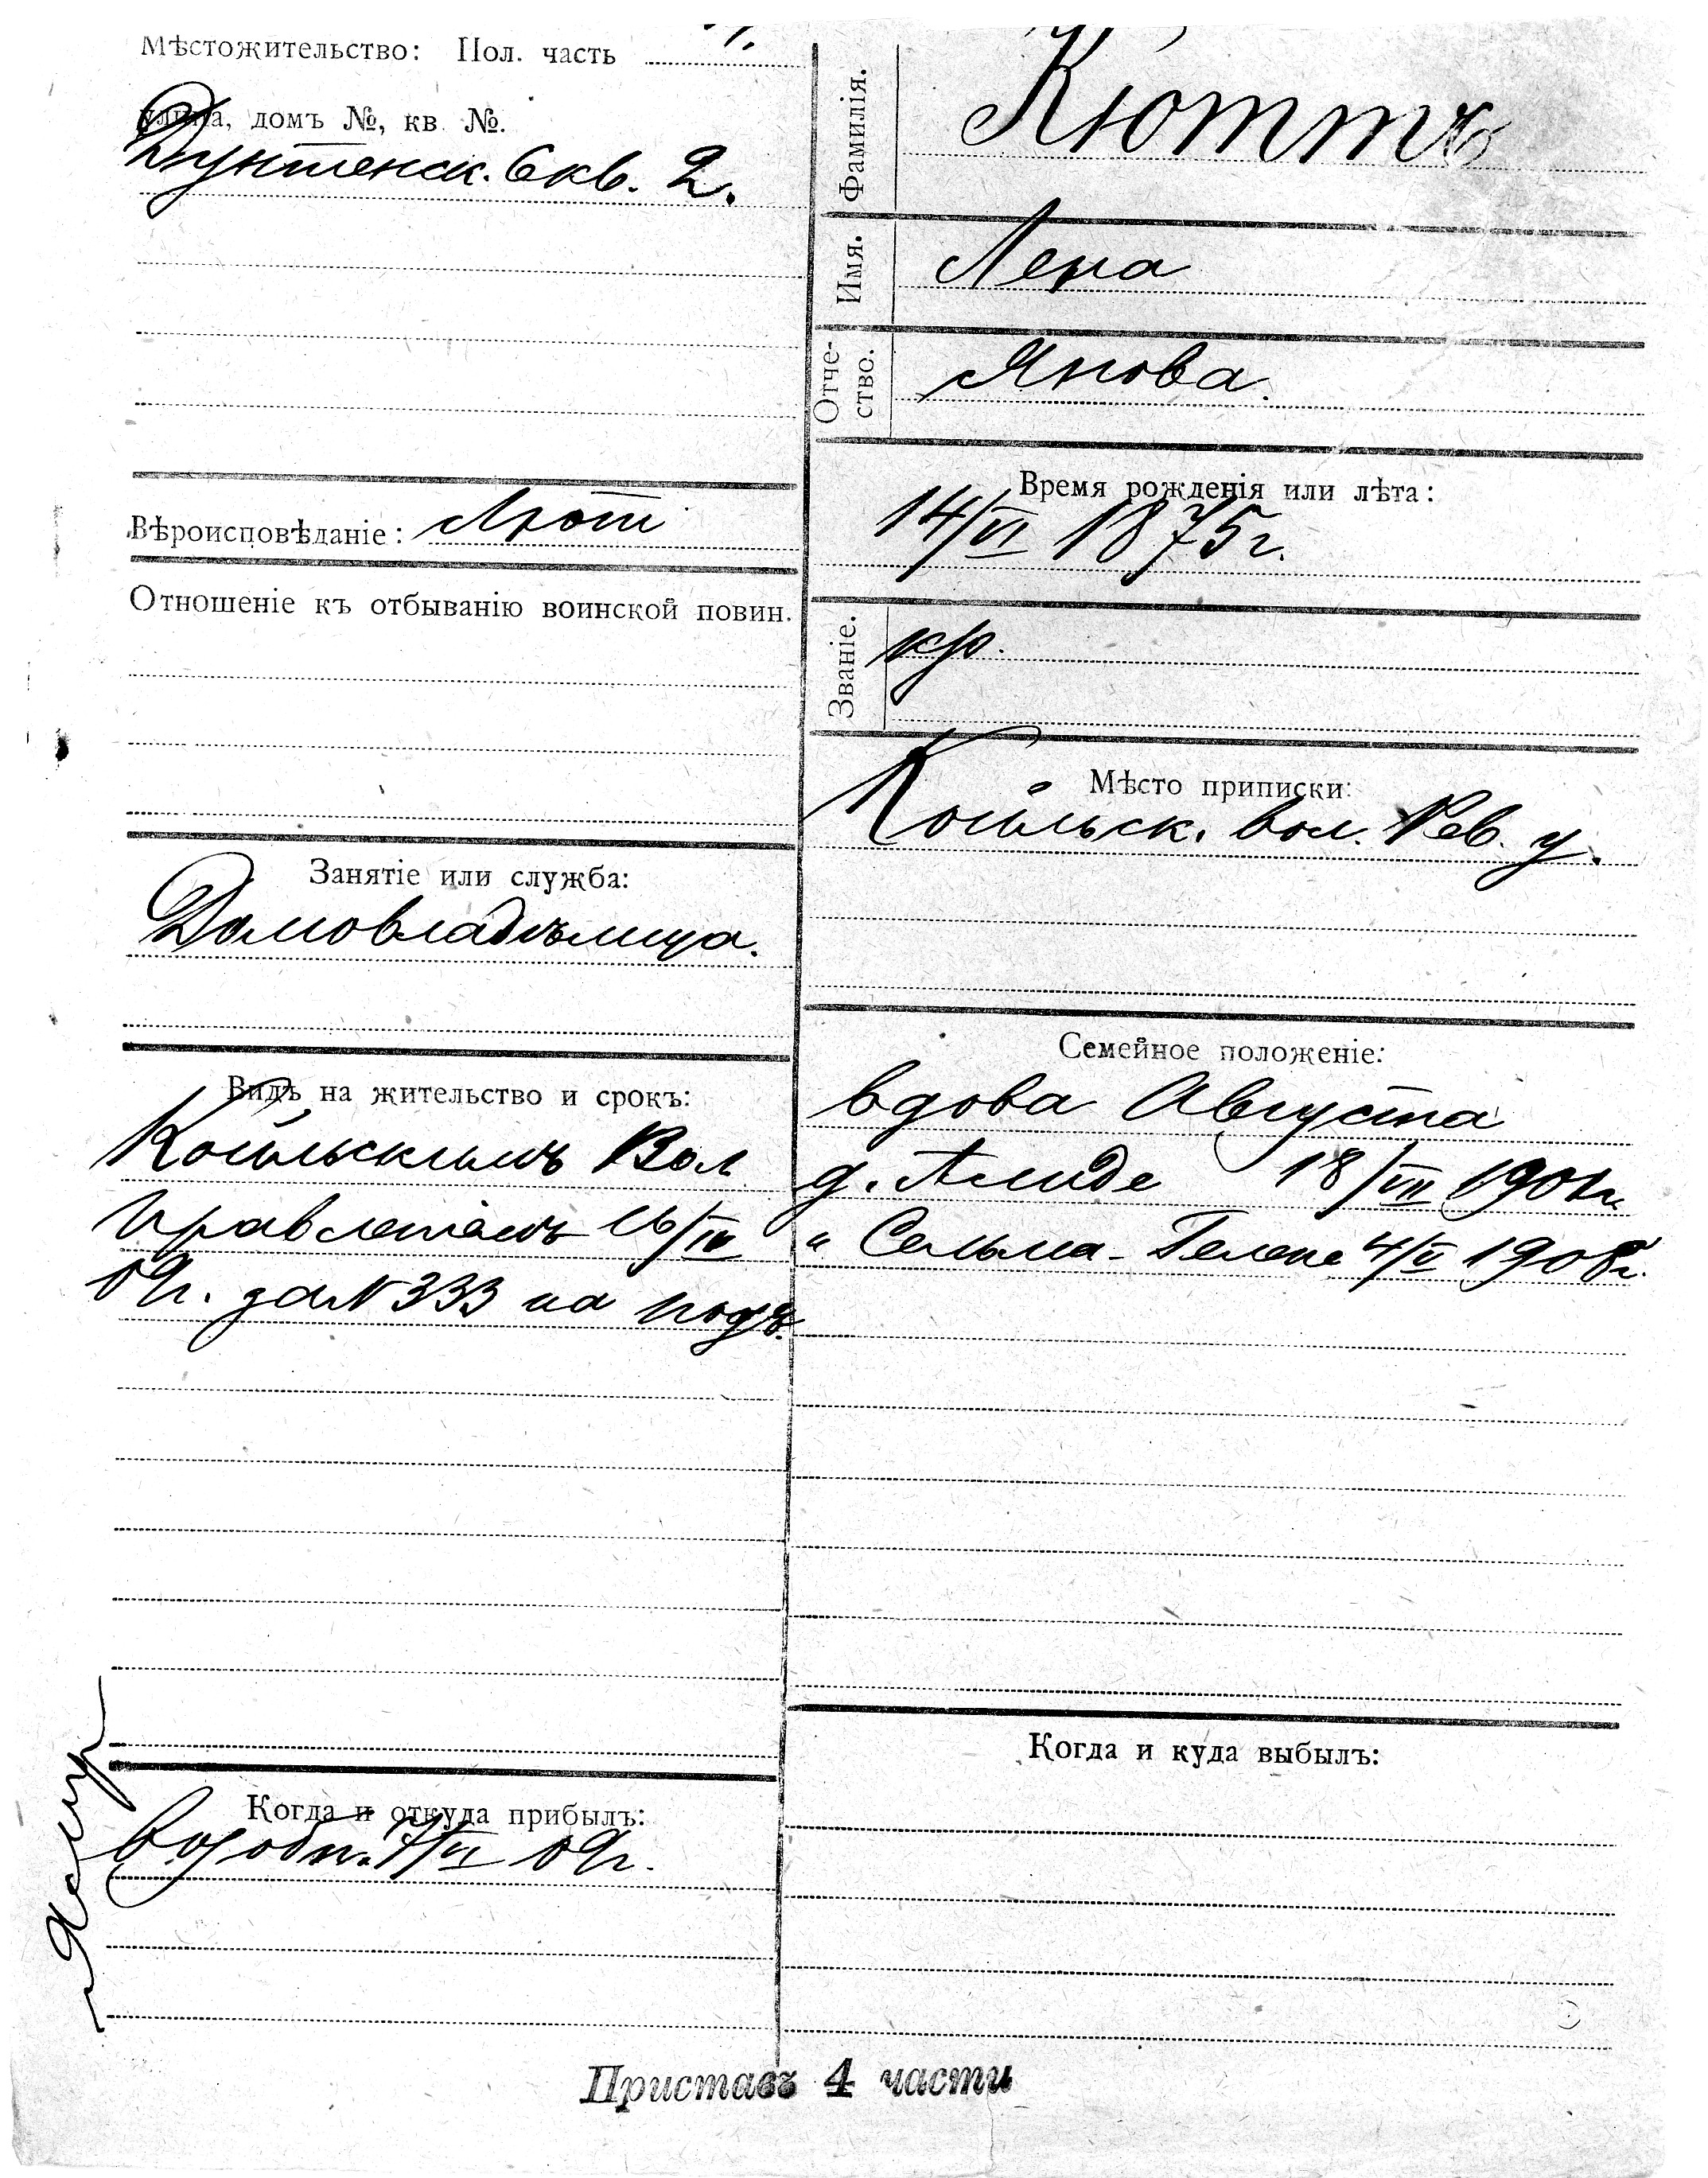 Мѣстожительство: Пол. часть
улица, домъ №, кв. №.
Дунтенск. 6 кв. 2.
Вѣроисповѣданіе: Лют
Отношеніе къ отбыванію воинской повин.
Занятіе или служба:
Домовладѣлица.
Видъ на жительство и срокъ:
Койльскимъ Вол
Правленіемъ 16/IV
09г. за N 333 на годъ.
Когда и откуда прибылъ:
возобн. 7/VI 09г.
Фамилія. Кюттъ
Имя. Лена
Отче-
ство. Янова.
Время рожденія или лѣта:
14/VI 1875 г.
Званіе. кр.
Мѣсто приписки:
Койльск. вол. Рев. у.
Семейное положеніе:
вдова Августа
д. Алиде 18/VII 1901г.
" Сельма-Гелене 4/V 1908г.
Когда и куда выбылъ:
Приставъ 4 части